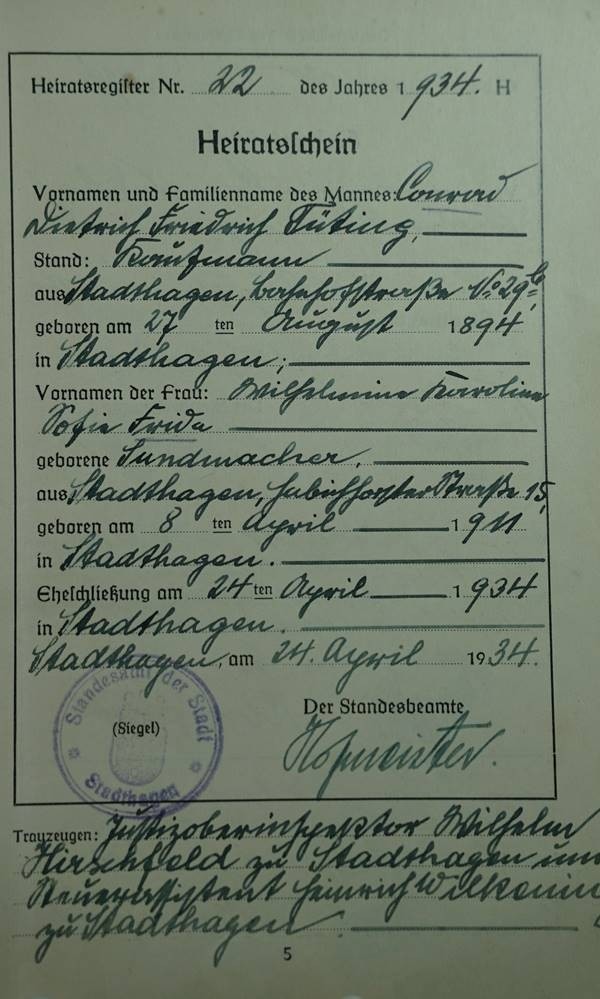 Heiratsregister Nr. 22 des Jahres 1934. H
Heiratsschein
Vornamen und Familienname des Mannes: Conrad
Dietrich Friedrich Tüting,
Stand: Kaufmann
aus Stadthagen, Bahnhofstraße No. 29b,
geboren am 27 ten August 1894
in Stadthagen;
Vornamen der Frau: Wilhelmine Karoline
Sofie Frida
geborene Sundmacher,
aus Stadthagen, Habichhorster Straße 15,
geboren am 8 ten April 1911
in Stadthagen.
Eheschließung am 24 ten April 1934
in Stadthagen.
Stadthagen, am 24. April 1934.
Standesamt der Stadt
Stadthagen
(Siegel)
Der Standesbeamte
Hofmeister.
Trauzeugen: Justizoberinspektor Wilhelm
Hirschfeld zu Stadthagen und
Steuerassistent Heinrich Wilkening
zu Stadthagen.
5